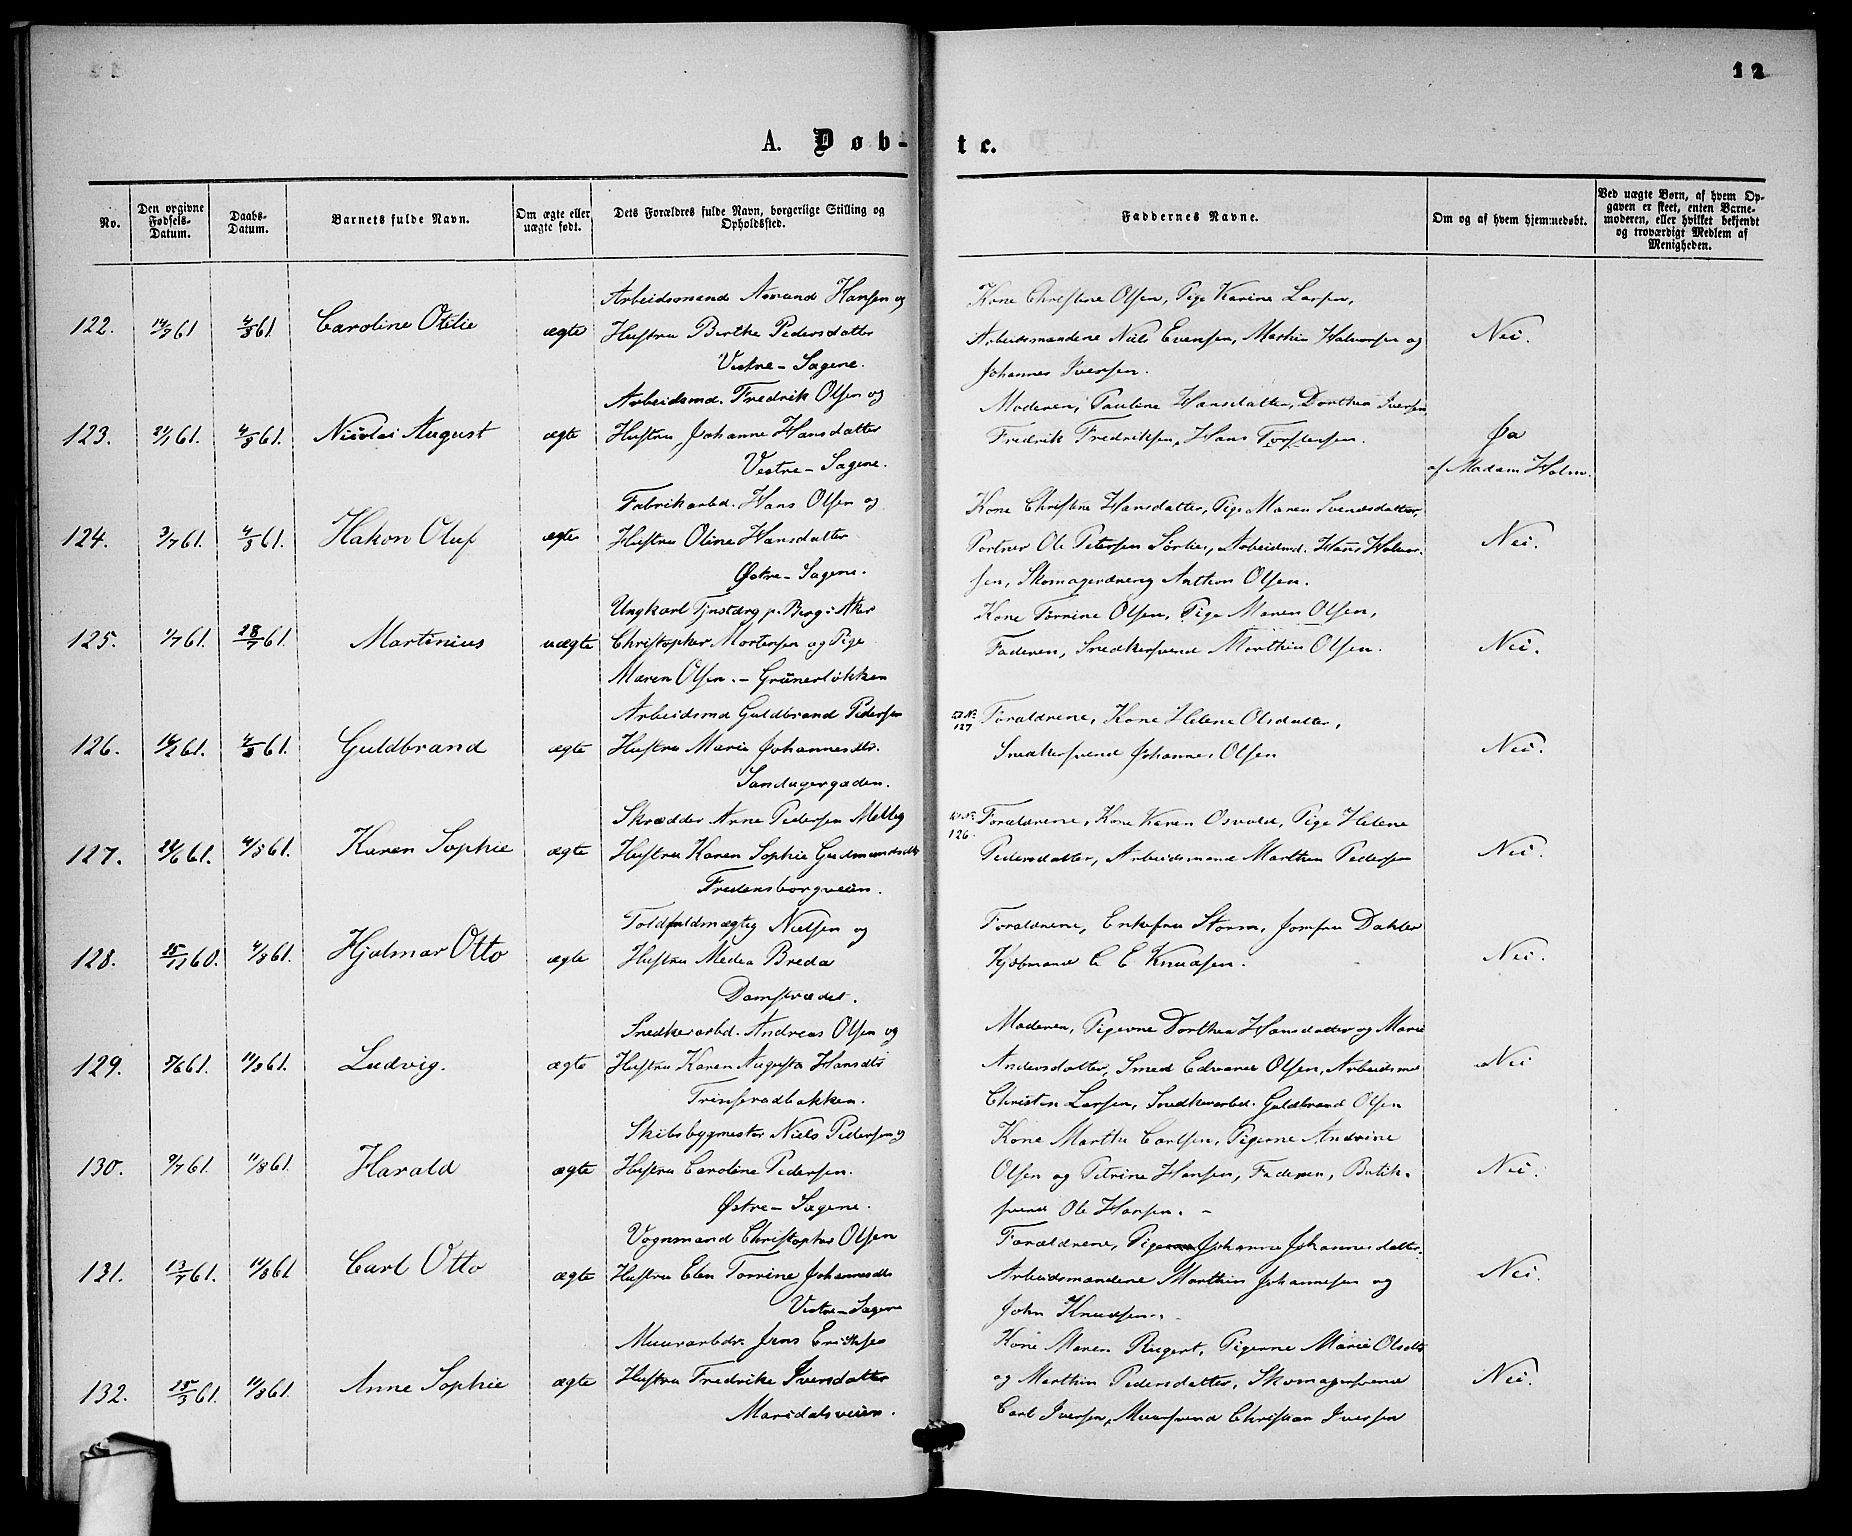 12
A. Døb-
te.
No.
Den opgivne Fødsels-Datum.
Daabs-Datum.
Barnets fulde Navn.
Om ægte eller uægte født.
Dets Forældres fulde Navn, borgerlige Stilling og Opholdssted.
Faddernes Navne.
Om og af hvem hjemmedøbt.
Ved uægte Børn, af hvem Opgaven er skeet, enten Barnemoderen, eller hvilket bekjendt og troværdigt Medlem af Menigheden.
Arbeidsmand Amund Hansen og
122. 4/8 61. Caroline Otilie ægte Hustru Berthe Pedersdatter
Vestre-Sagene.
Kone Christine Olsen, Pige Karine Larsen,
Arbeidsmændene Niels Evensen, Mathis Halvorsen og Nei.
Johannes Iversen.
Arbeidsmd. Fredrik Olsen og
123. 4/8 61. Nicolai August ægte Hustru Johanne Hansdatter
Vestre-Sagene.
Moderen, Pauline Hansdatter, Dorthea Iversen
Fredrik Fredriksen, Hans Torstensen. Ja
af Madam Holm.
Fabrikarbd. Hans Olsen og
124. 3/7 61. 4/8 61. Hakon Oluf ægte Hustru Oline Hansdatter
Østre-Sagene.
Kone Christine Hansdatter, Pige Maren Svendsdatter,
Portner Ole Petersen Sørlie, Arbeidsmd. Hans Halvor- Nei.
sen, Skomagerdreng Anthon Olsen.
Ungkarl Tjnstdrg p. Berg i Aker
125. 1/7 61. 28/7 61. Martinius uægte Christopher Mortensen og Pige
Maren Olsen. - Grünerløkken
Kone Torine Olsen, Pige Maren Olsen,
Faderen, Snedkersvend Marthin Olsen. Nei.
Arbeidsmd Guldbrand Pedersen
126. 4/8 61. Guldbrand ægte Hustru Marie Johannesdtr.
Sandagergaden.
127 Forældrene, Kone Helene Olsdatter,
Snedkersvend Johannes Olsen Nei.
Skrædder Arne Pedersen Melbg
127. 24/6 61. 4/8 61. Karen Sophie ægte Hustru Karen Sophie Gudmundsdtr
Fredensborgveien.
126. Forældrene, Kone Karen Osvold, Pige Helene
Pedersdatter, Arbeidsmand Marthin Pedersen Nei.
Toldfuldmægtig Nielsen og
128. 25/12 60. 4/8 61. Hjalmar Otto ægte Hustru Medea Breda
Damstrædet.
Forældrene, Enkefru Storm, Jomfru Dahler
Kjøbmand C E Knudsen. Nei.
Snedkerarbd. Andreas Olsen og
129. 5/6 61. 11/8 61. Ludvig. ægte Hustru Karen Augusta Hansdtr
Trinserudbakken.
Moderen, Pigerne Dorthea Hansdatter og Marie
Andersdatter, Smed Edvard Olsen, Arbeidsmd Nei
Christen Larsen, Snedkerarbd. Guldbrand Olsen
Skibsbygmester Niels Pedersen og
130. 9/7 61. 11/8 61. Harald ægte Hustru Caroline Pedersen.
Østre-Sagene.
Kone Marthe Carlsen, Pigerne Andrine
Olsen og Petrine Hansen, Faderen, Butik- Nei.
svend Ole Hansen. -
Vognmand Christopher Olsen
131. 13/7 61. 11/8 61 Carl Otto ægte Hustru Elen Torrine Johannesdtr
Vestre-Sagene
Forældrene, Pige Johanne Johannesdatter.
Arbeidsmændene Marthin Johannesen og Nei.
John Knudsen.
Muurarbdr. Jens Eriksen
132. 25/3 61. 11/8 61. Anne Sophie ægte Hustru Fredrike Iversdatter
Maridalsveien.
Kone Maren Rugert, Pigerne Marie Olsdtr
og Marthin Pedersdatter, Skomagersvend Nei.
Carl Iversen, Muursvend Christian Iversen